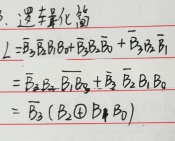 3. 逻辑化简
L = B̅₃B̅₂B₁B₀ + B̅₃B₂B̅₀ + B̅₃B₂B̅₁
= B̅₃B₂ B̅₁B̅₀ + B̅₃ B̅₂ B₁B₀
= B̅₃ (B₂ ⊕ B₁ B₀)